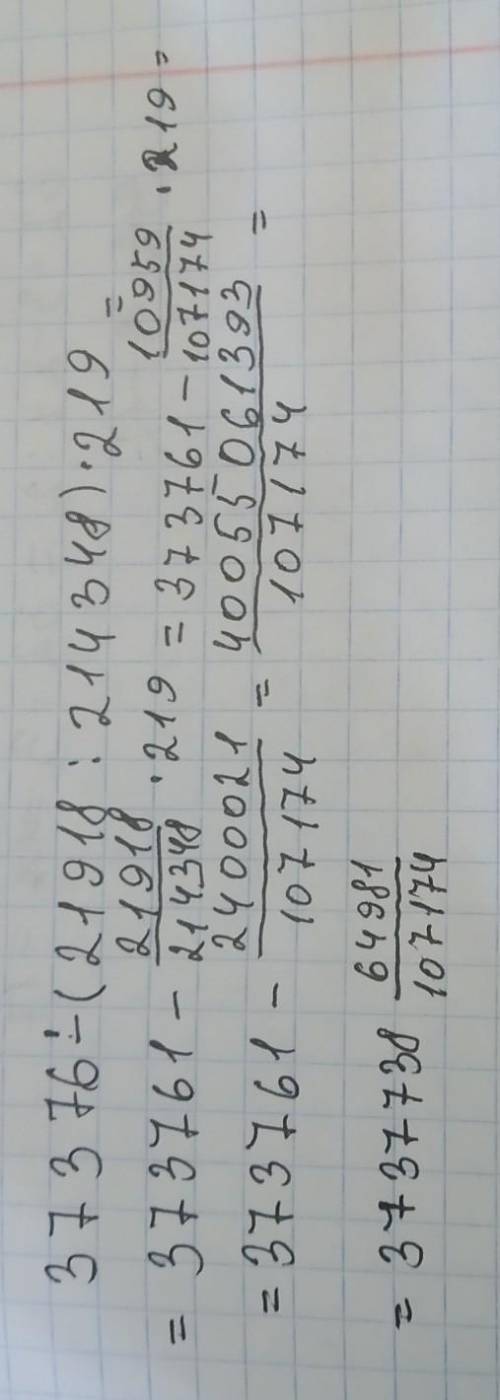 373761-(21918:214348)·219 =
= 373761 - 21918/214348 · 219 = 373761 - 10959/107174 · 219 =
= 373761 - 2400021/107174 = 40055061393/107174 =
= 3737738 64981/107174